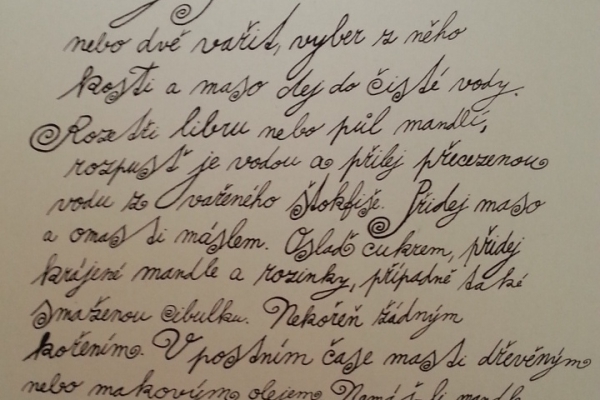 nebo dvě vařit, vyber z něho
kosti a maso dej do čisté vody.
Rozetři libru nebo půl mandlí,
rozpusť je vodou a přilej přecezenou
vodu z vařeného štokfiše. Přidej maso
a omasti máslem. Oslaď cukrem, přidej
krájené mandle a rozinky, případně také
smaženou cibulku. Nekořeň žádným
kořením. V postním čase masti dřevěným
nebo makovým olejem. Nemáš-li mandle